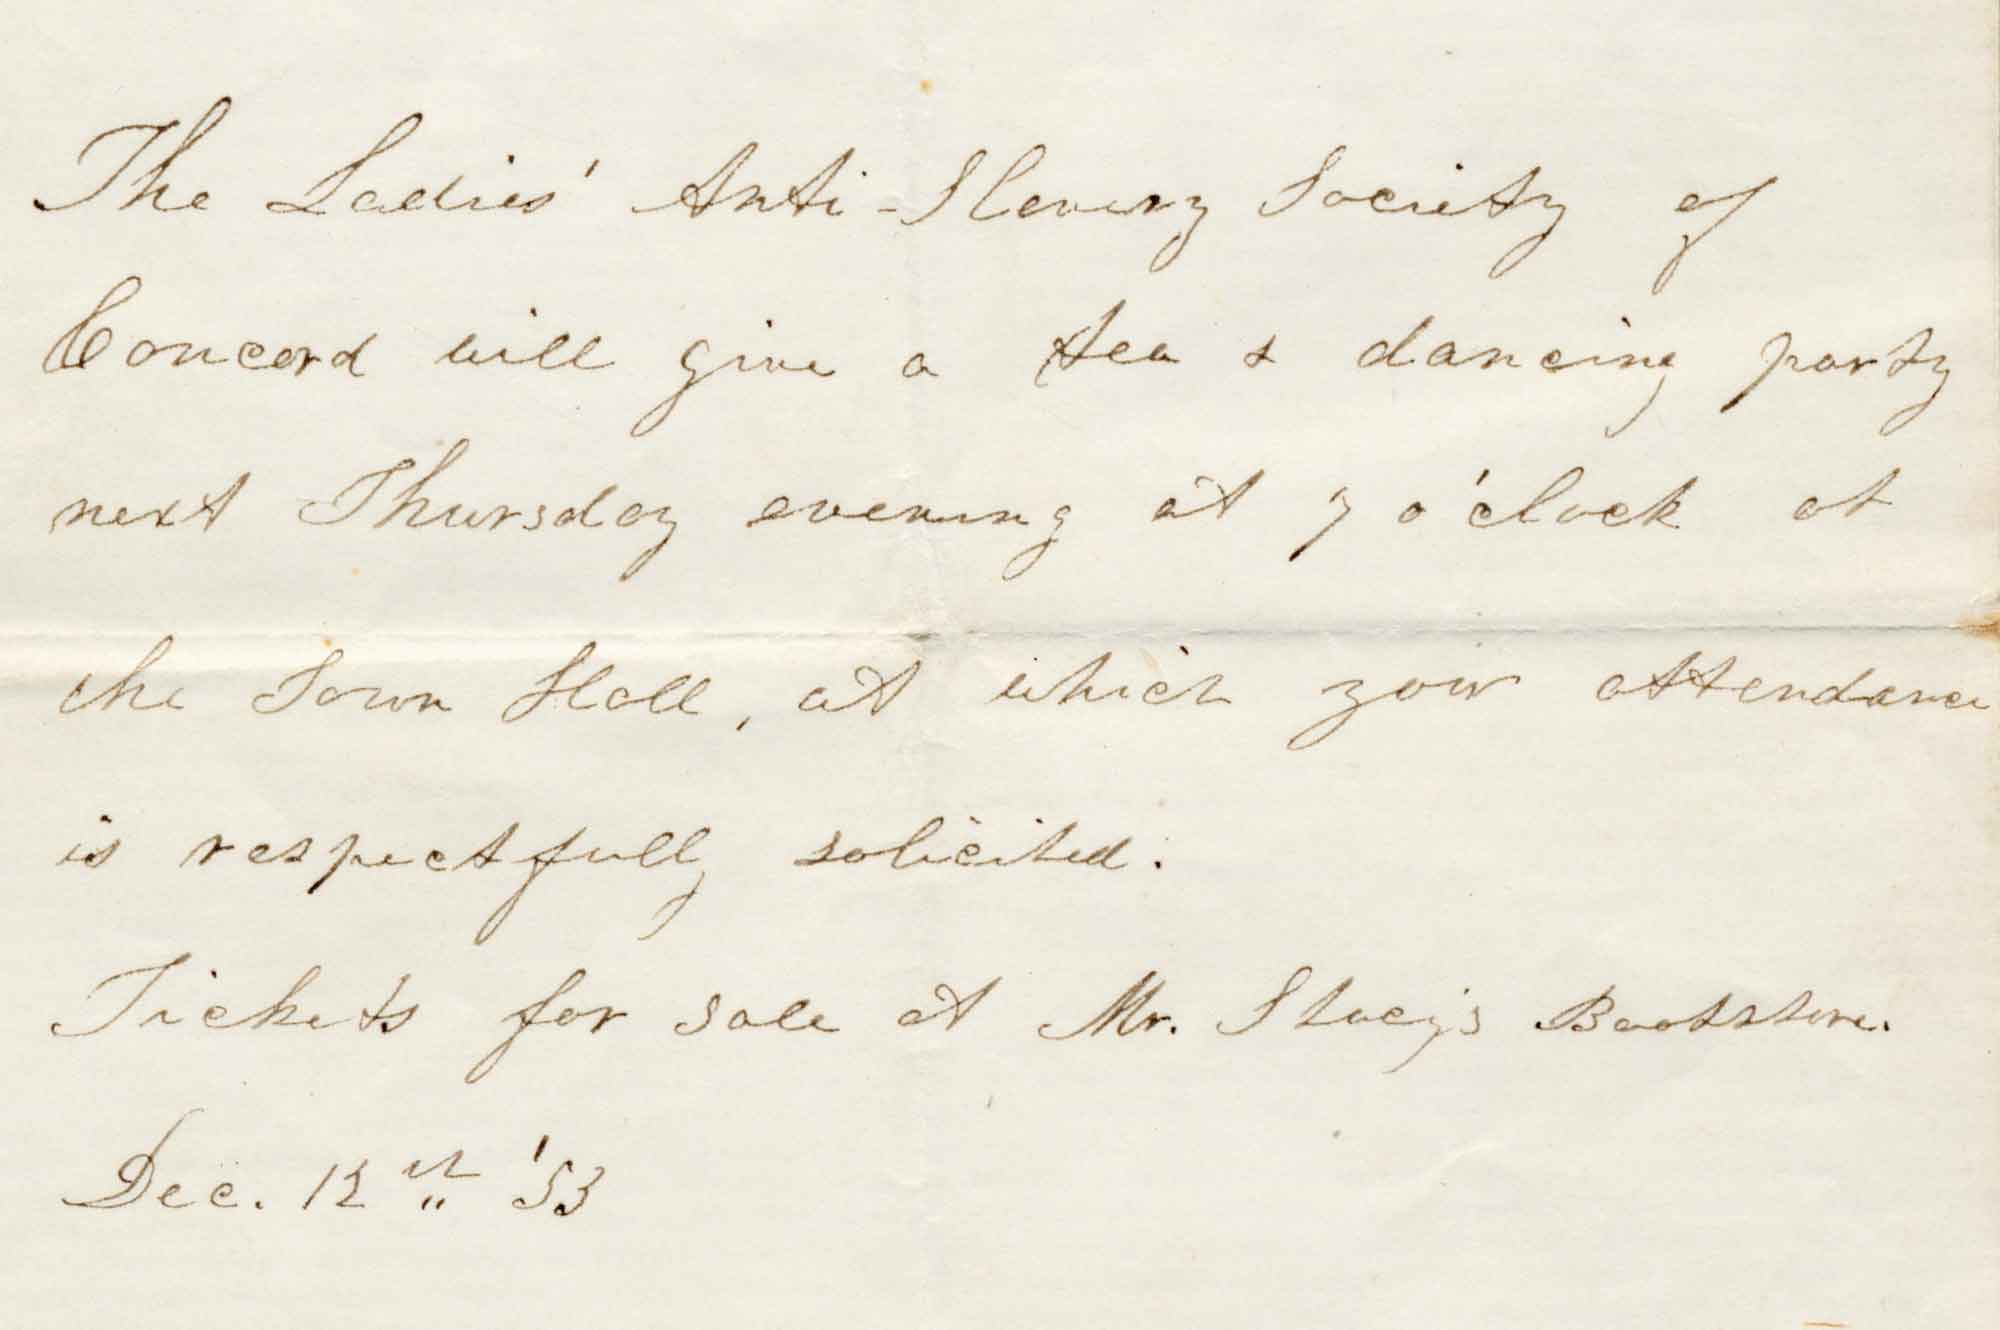 The Ladies' Anti-Slavery Society of
Concord will give a tea & dancing party
next Thursday evening at 7 o'clock at
the Town Hall, at which your attendance
is respectfully solicited.
Tickets for sale at Mr. Stacy's Bookstore.
Dec. 12th '53